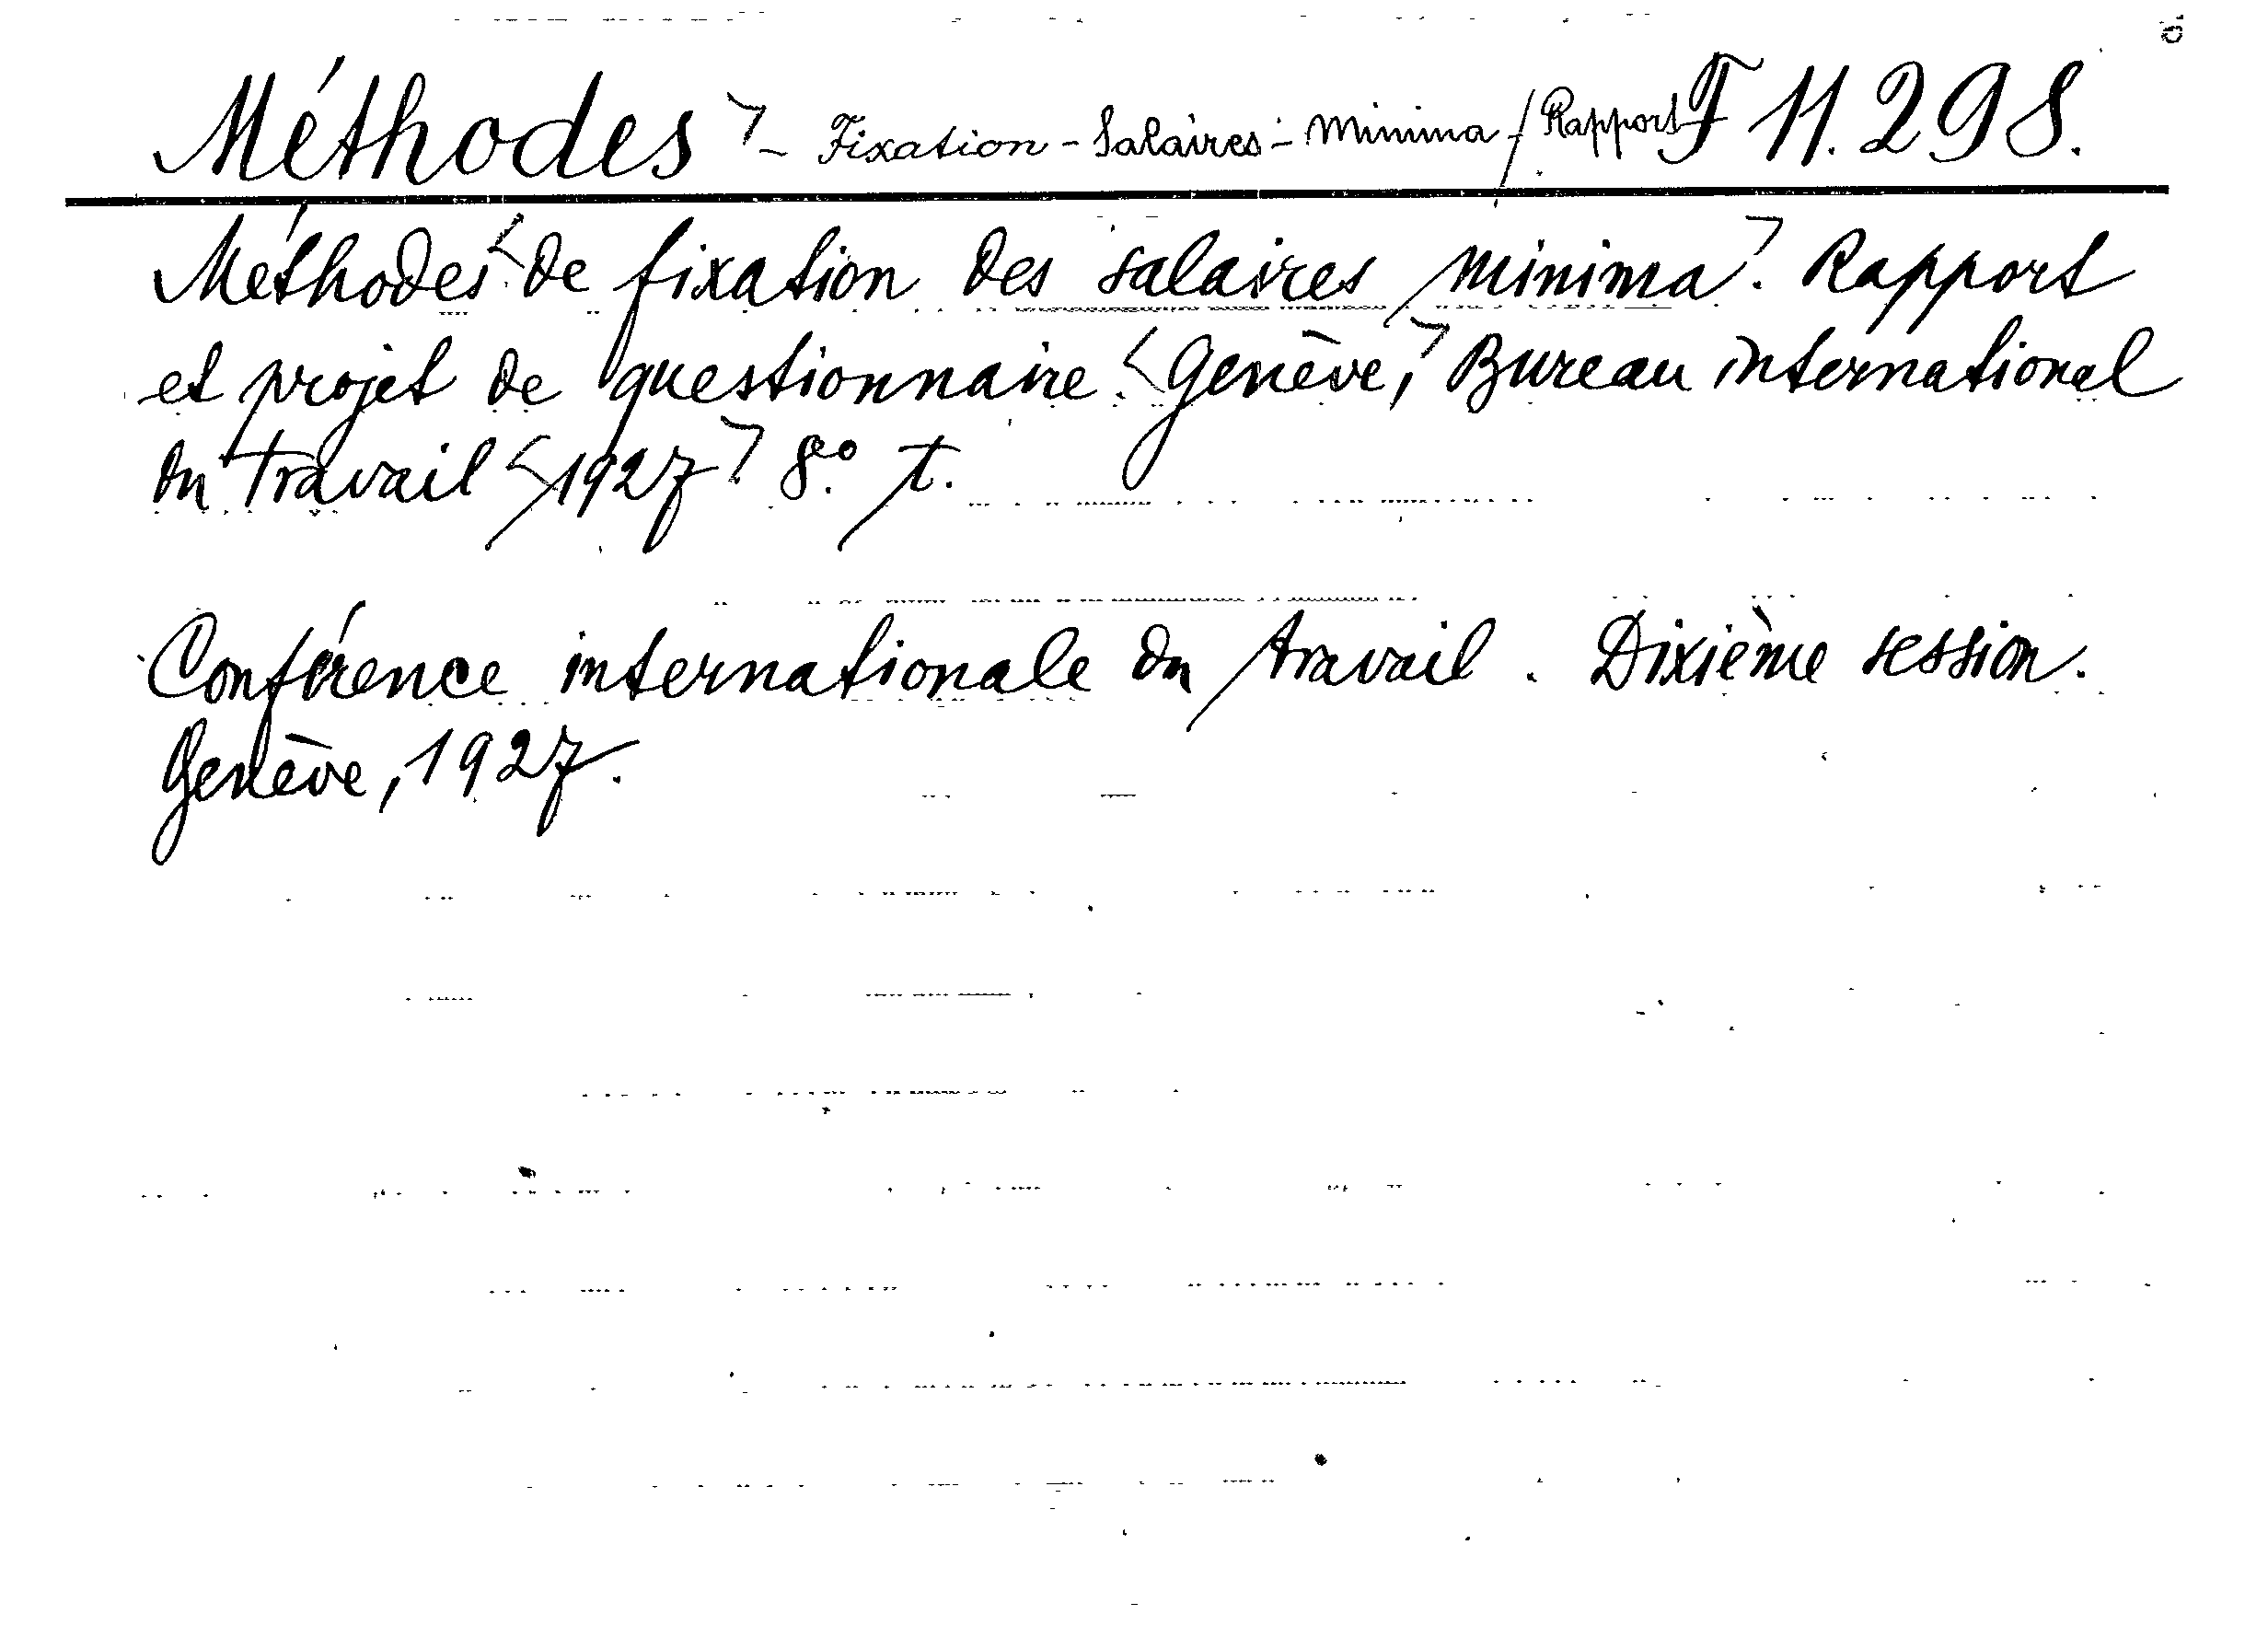 Méthodes - Fixation - Salaires - Minima / Rapport F 11.298.
Méthodes de fixation des salaires minima. Rapport
et projet de questionnaire. Genève, Bureau international
du travail 1927. 8°. t.
Conférence internationale du travail. Dixième session.
Genève, 1927.